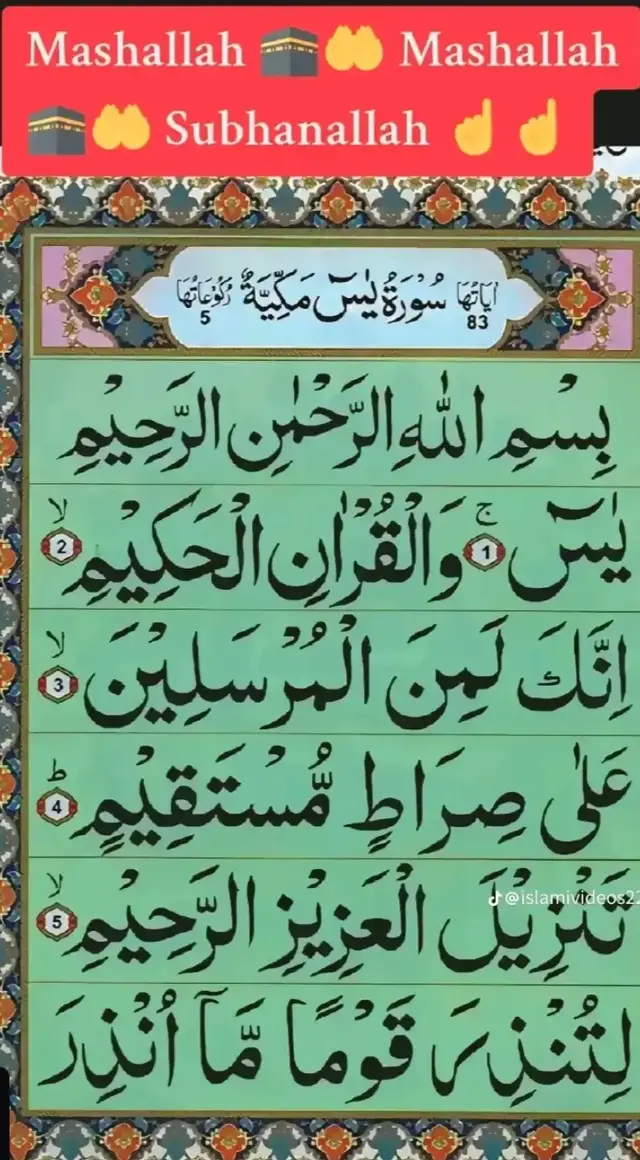 Mashallah 🕋🤲 Mashallah
🕋🤲 Subhanallah ☝️☝️
اٰیَاتُهَا 83 سُوْرَةُ یٰسٓ مَكِّیَّةٌ رُكُوْعَاتُهَا 5
بِسْمِ اللّٰهِ الرَّحْمٰنِ الرَّحِیْمِ
یٰسٓ ۚ 1 وَالْقُرْاٰنِ الْحَكِیْمِ ۙ 2
اِنَّكَ لَمِنَ الْمُرْسَلِیْنَ ۙ 3
عَلٰی صِرَاطٍ مُّسْتَقِیْمٍ ؕ 4
تَنْزِیْلَ الْعَزِیْزِ الرَّحِیْمِ ۙ 5
@islamivideos22
لِتُنْذِرَ قَوْمًا مَّاۤ اُنْذِرَ